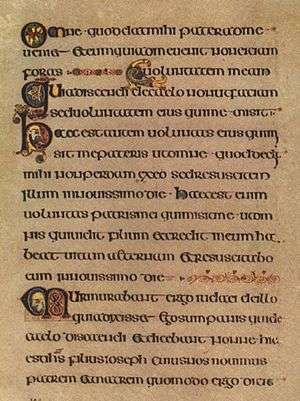 Omne quod dat mihi pater ad me
ueniet et eum qui ad me uenit non eiciam
foras uoluntatem meam
Quia discendi de caelo non ut faciam
sed uoluntatem eius qui me misit
Haec est autem uoluntas eius qui m
sit me patris ut omne quod dedit
mihi non perdam ex eo sed resuscitem
illum in nouissimo die haec est enim
uoluntas patris mei qui misit me ut om
nis qui uidit filium et credit in eum ha
beat uitam aeternam et resuscitabo
eum in nouissimo die
Murmurabant ergo iudaei de illo
quia dixisset ego sum panis qui de
caelo discendi et dicebant nonne hic
est ihs filius ioseph cuius nos nouimus
patrem et matrem quomodo ergo dicit